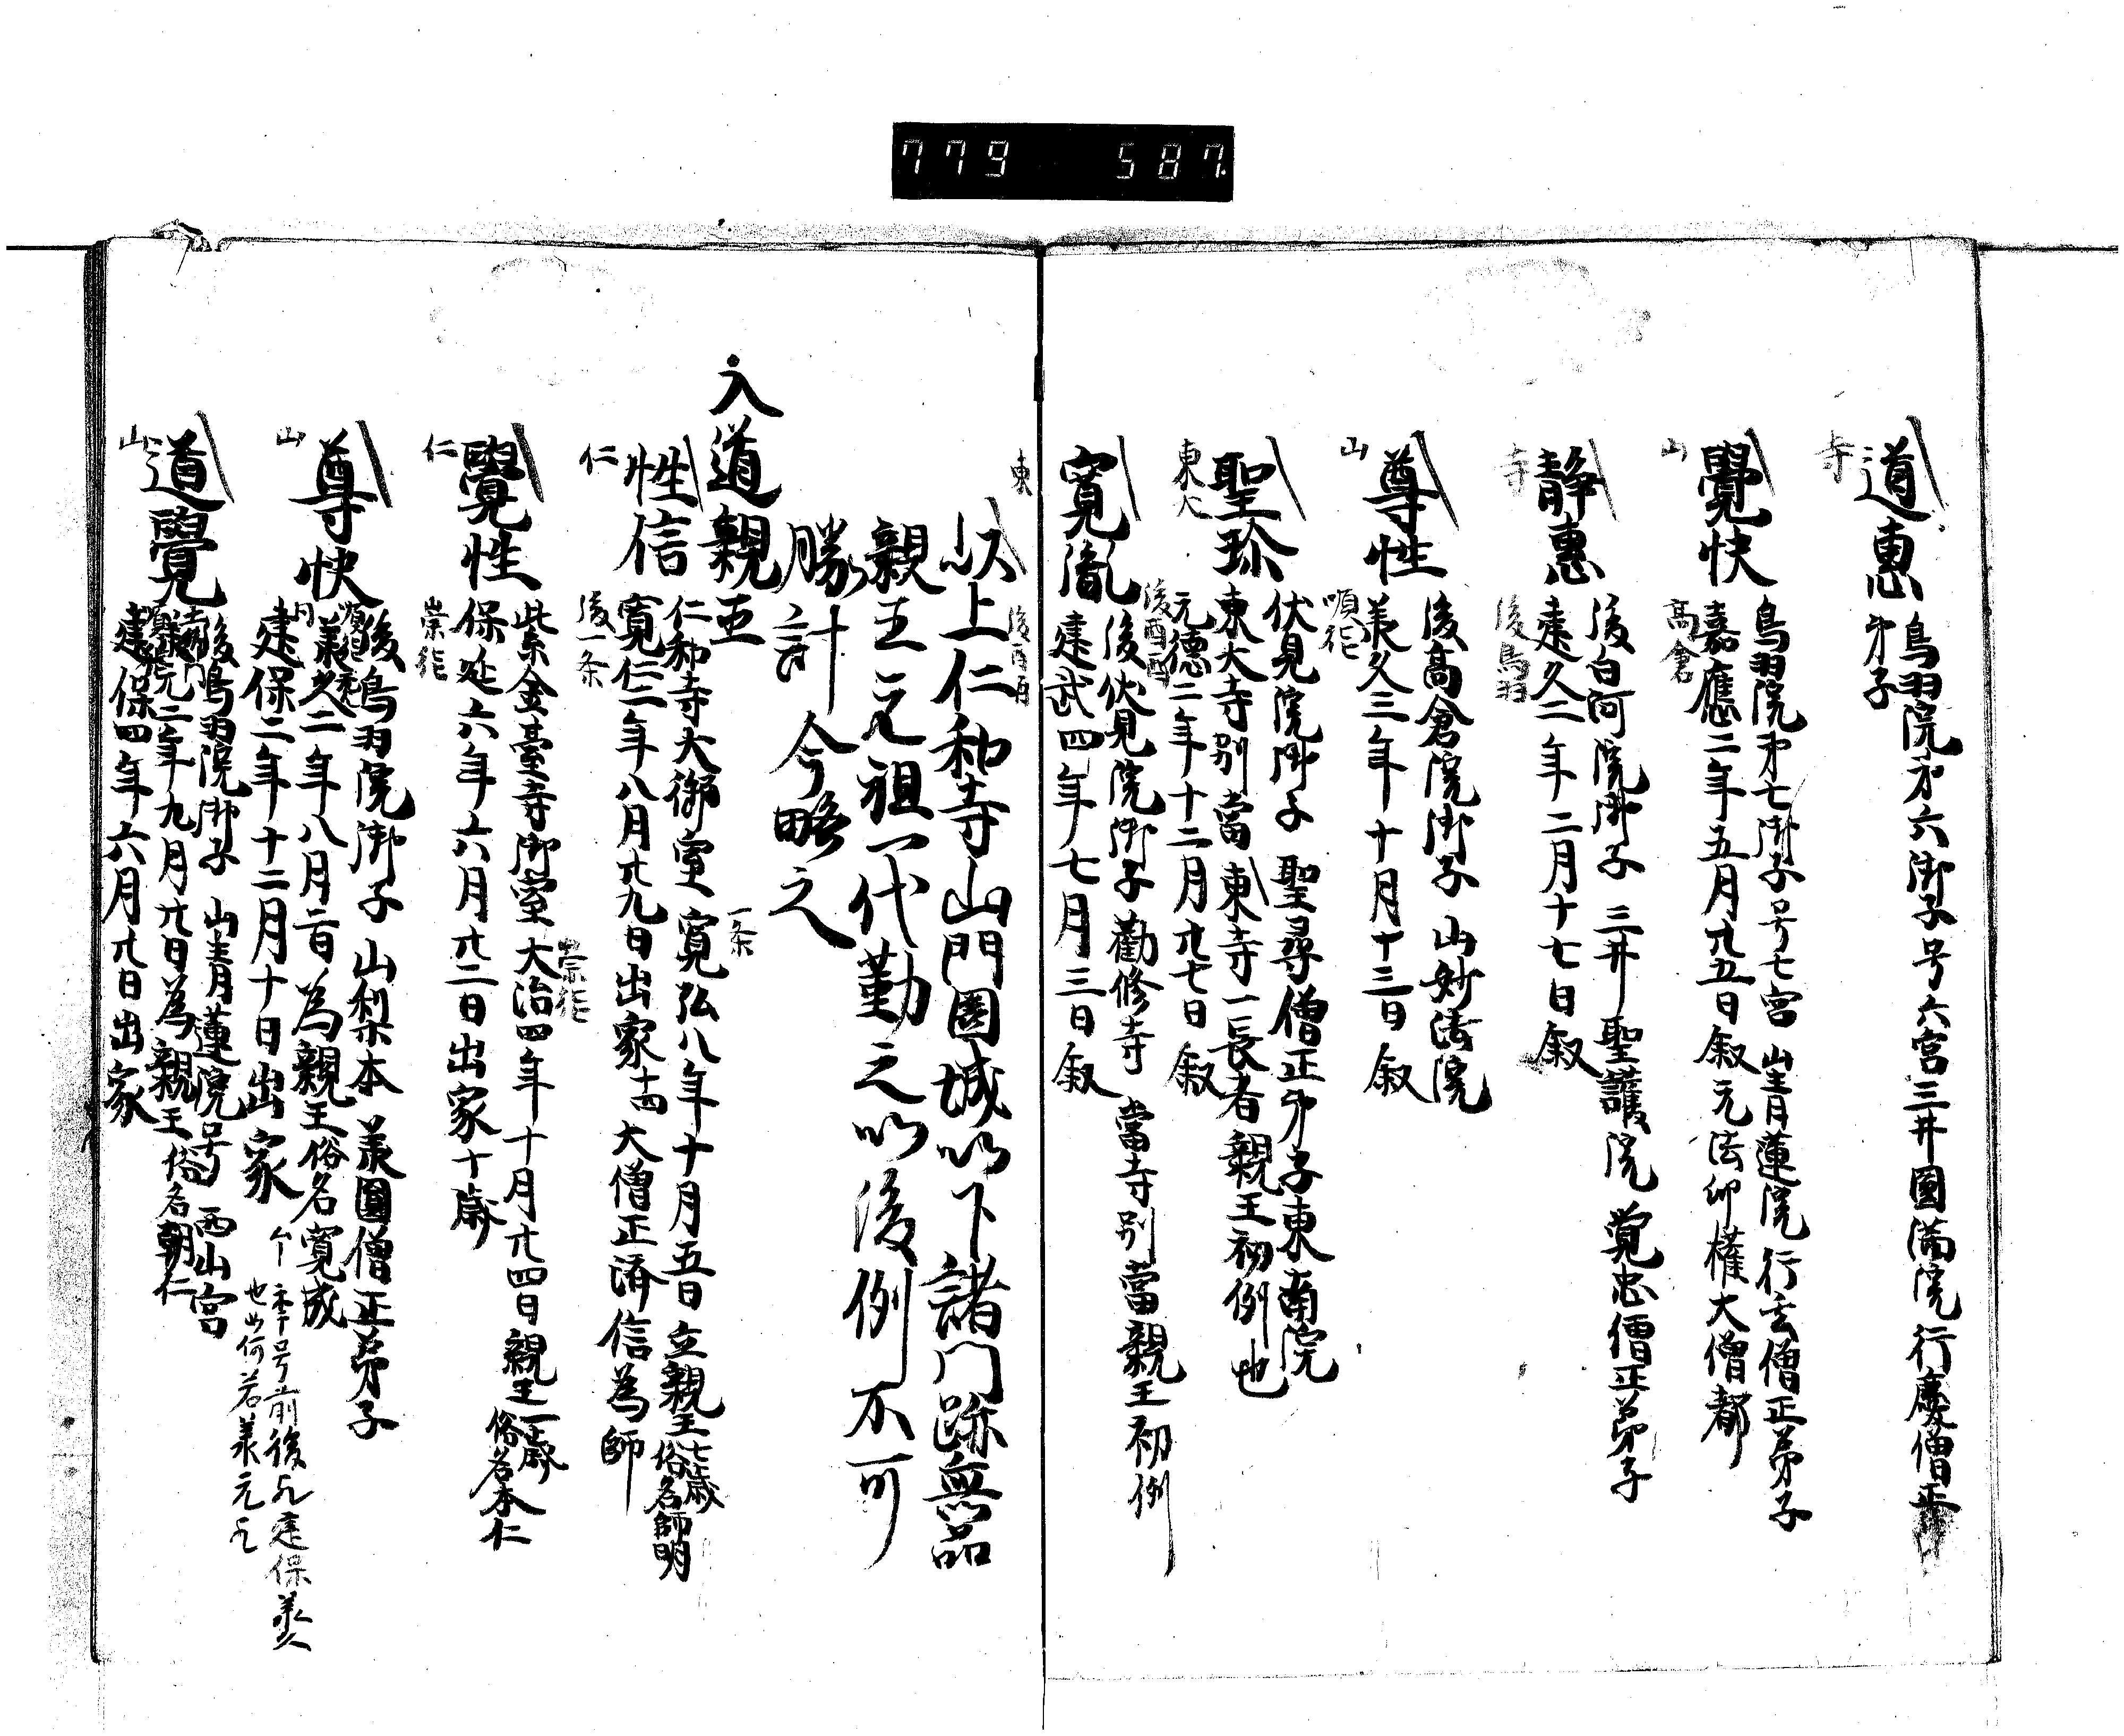 779 587
道惠
鳥羽院才六御子号六宮三井圓満院行慶僧正
弟子
寺
覺快
鳥羽院才七御子号七宮 山青蓮院行玄僧正弟子
嘉應二年五月廿五日叙元法印權大僧都
山
高倉
静惠
後白河院御子 三井聖護院 覚忠僧正弟子
建久二年二月十七日叙
寺
後鳥羽
尊性
後高倉院御子 山妙法院
承久三年十月十三日叙
山
順德
聖珎
伏見院御子 聖尋僧正弟子東南院
東大寺別當 東寺一長者親王初例也
元德二年十二月廿七日叙
東大
後醍醐
寛胤
後伏見院御子 勸修寺 當寺別當親王初例
建武四年七月三日叙
東
以上仁和寺山門園城以下諸門跡無品
親王元祖一代勤之以後例不可
勝計今略之
入道親王
性信
仁和寺大御室 寛弘八年十月五日立親王七歳
俗名師明
一条
寛仁二年八月廿九日出家十四 大僧正濟信為師
仁
後一条
覺性
紫金臺寺御室 大治四年十月廿四日親王一歳
俗名本仁
崇德
保延六年六月廿二日出家十歳
仁
崇德
尊快
後鳥羽院御子 山梨本 承圓僧正弟子
承久二年八月一日為親王俗名寛成
建保二年十二月十日出家
年号前後也建保承久
也如何若承元也
山
道覺
後鳥羽院御子 山青蓮院号西山宮
承元二年九月廿日為親王俗名朝仁
建保四年六月廿日出家
山